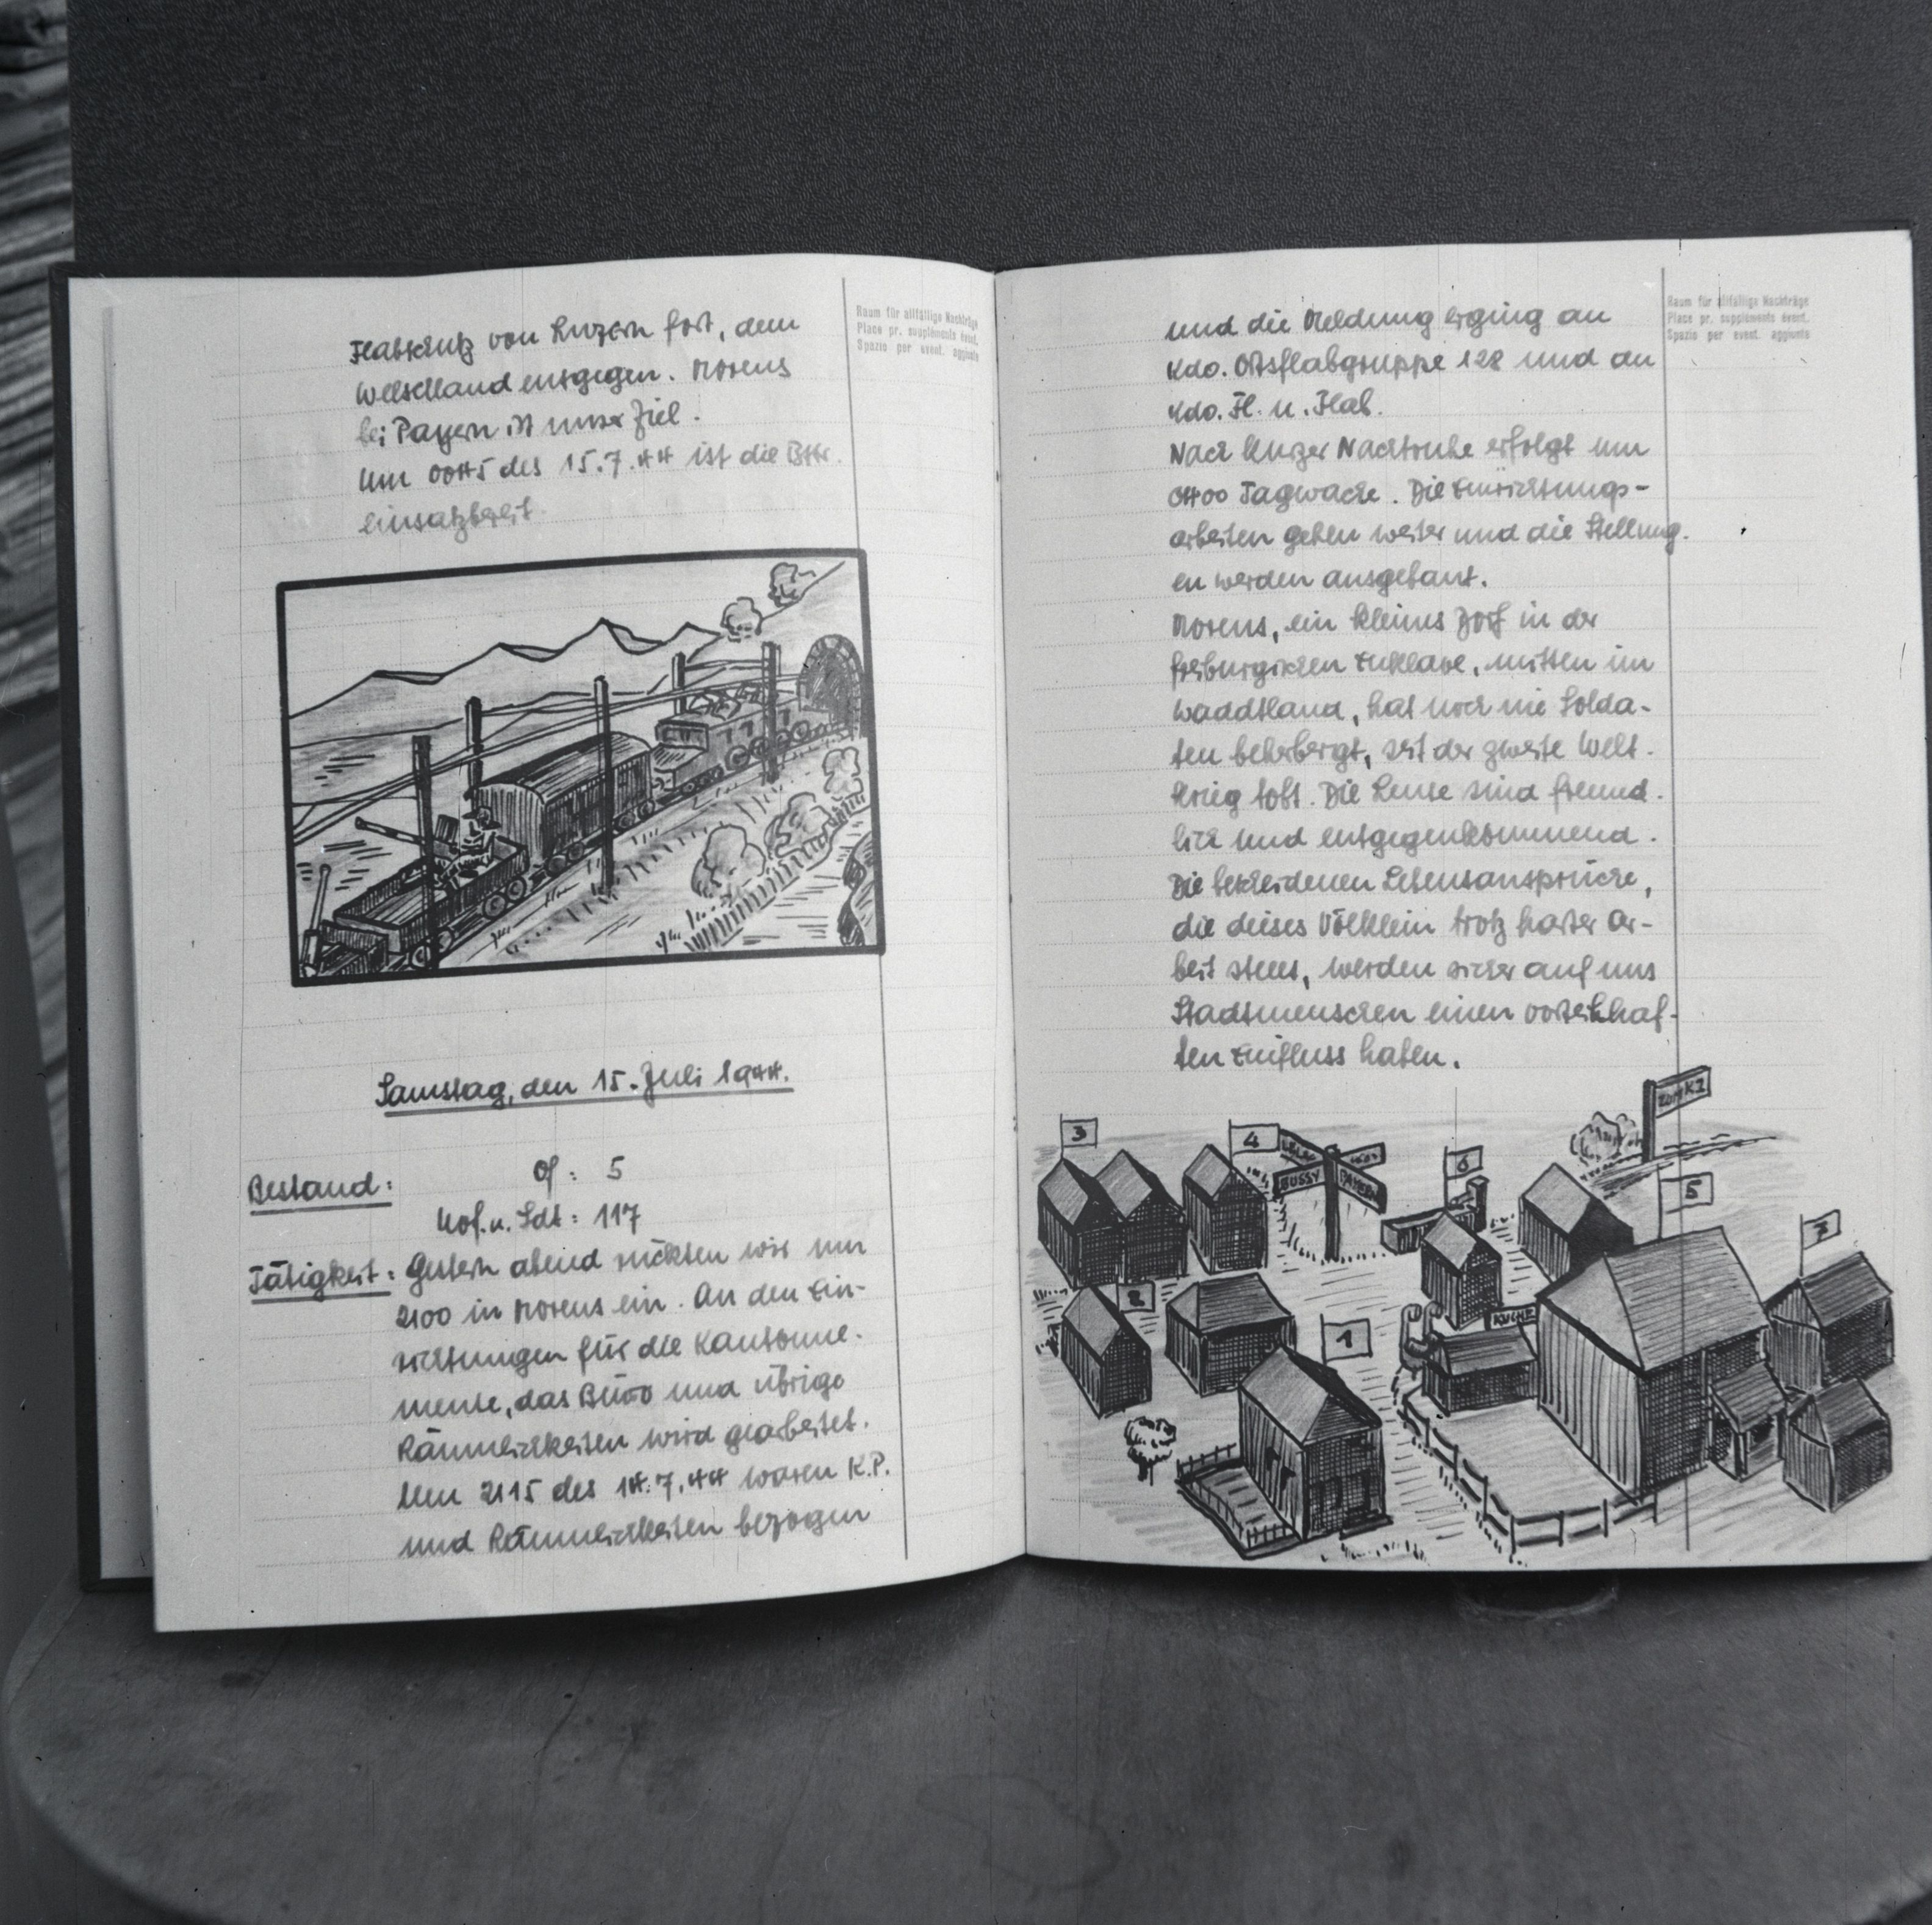 Flabschutz von Luzern fort, dem
Welschland entgegen. Morens
bei Payern ist unser Ziel.
Um 0045 des 15.7.44 ist die Bttr.
einsatzbereit.
Raum für allfällige Nachträge
Place pr. suppléments évent.
Spazio per event. aggiunte
Samstag, den 15. Juli 1944.
Bestand: Of: 5
Uof. u. Sdt: 117
Tätigkeit: Gestern abend rückten wir um
2100 in Morens ein. An den Ein-
richtungen für die Kantonne-
mente, das Büro und übrige
Räumlichkeiten wird gearbeitet.
Um 2115 des 14.7.44 waren K.P.
und Räumlichkeiten bezogen
Raum für allfällige Nachträge
Place pr. suppléments évent.
Spazio per event. aggiunte
und die Meldung erging an
Kdo. Ortsflabgruppe 128 und an
Kdo. Fl. u. Flab.
Nach kurzer Nachtruhe erfolgt um
0400 Tagwache. Die Einrichtungs-
arbeiten gehen weiter und die Stellung-
en werden ausgebaut.
Morens, ein kleines Dorf in der
freiburgischen Enklave, mitten im
Waadtland, hat noch nie Solda-
ten beherbergt, seit der zweite Welt-
krieg tobt. Die Leute sind freund-
lich und entgegenkommend.
Die bescheidenen Lebensansprüche,
die dieses Völklein trotz harter Ar-
beit stellt, werden sicher auf uns
Stadtmenschen einen vorteilhaf-
ten Einfluss haben.
ZUM KZ
3
4
BUSSY
PAYERN
6
5
7
2
KÜCHE
1